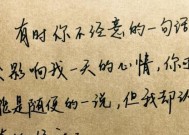 有时你不经意的一句话
影响我一天的心情，你
是随便的一说，但我却